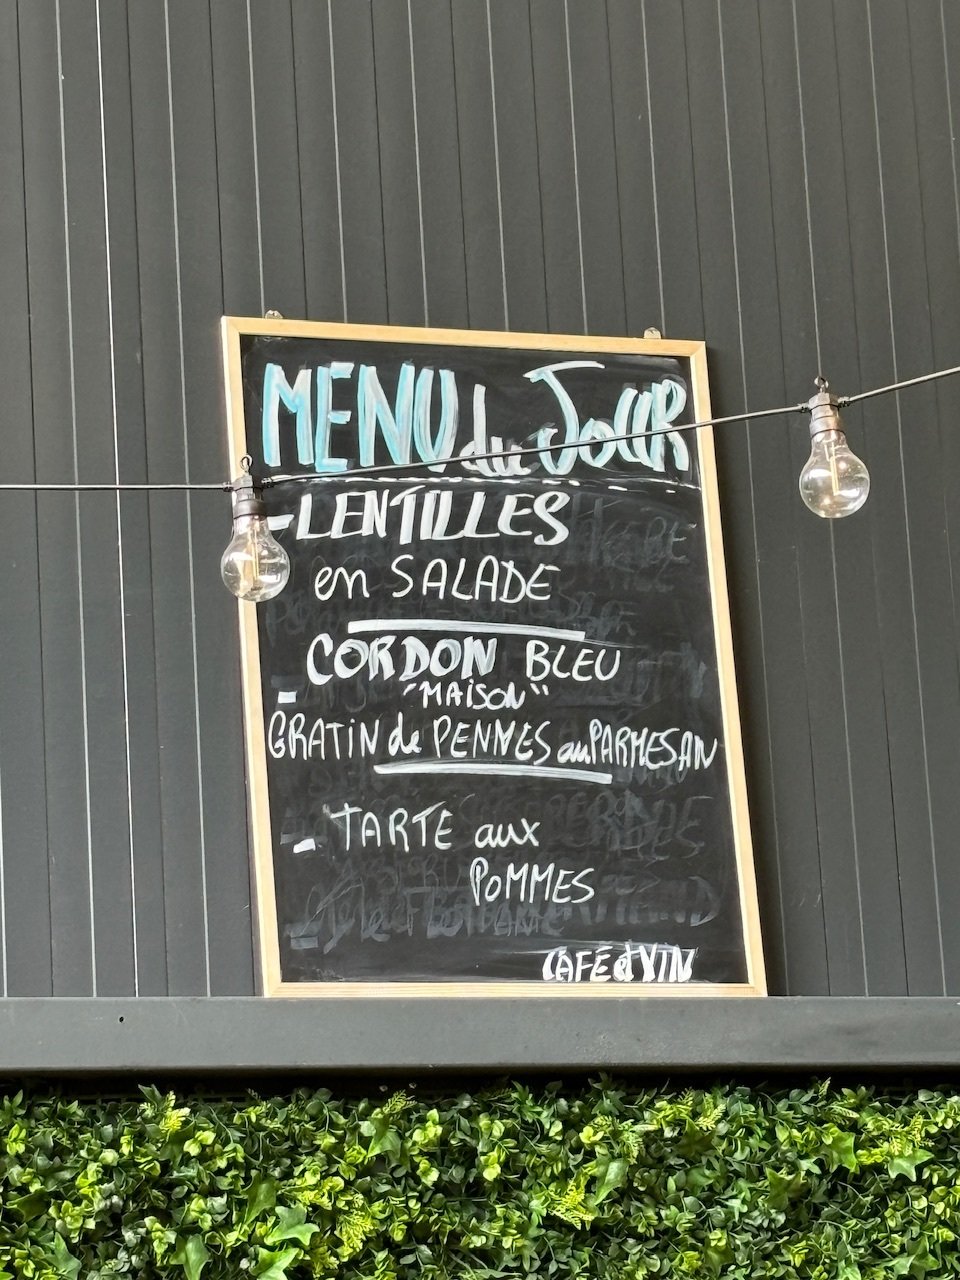 MENU du JOUR
- LENTILLES
en SALADE
CORDON BLEU
- "MAISON"
GRATIN de PENNES au PARMESAN
- TARTE aux
POMMES
CAFÉ et VIN